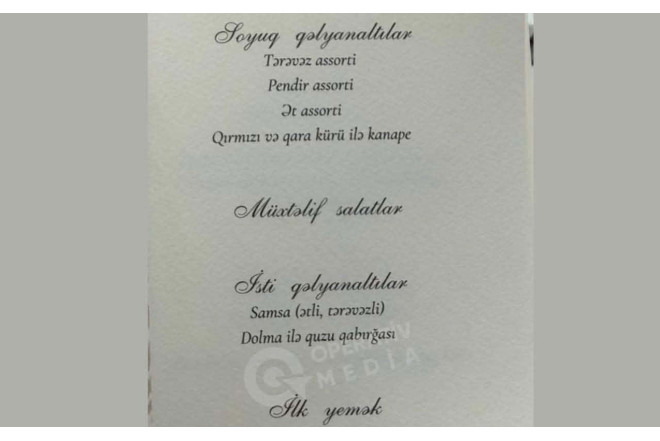 Soyuq qəlyanaltılar
Tərəvəz assorti
Pendir assorti
Ət assorti
Qırmızı və qara kürü ilə kanape
Müxtəlif salatlar
İsti qəlyanaltılar
Samsa (ətli, tərəvəzli)
Dolma ilə quzu qabırğası
OPERATİV
MEDİA
İlk yemək